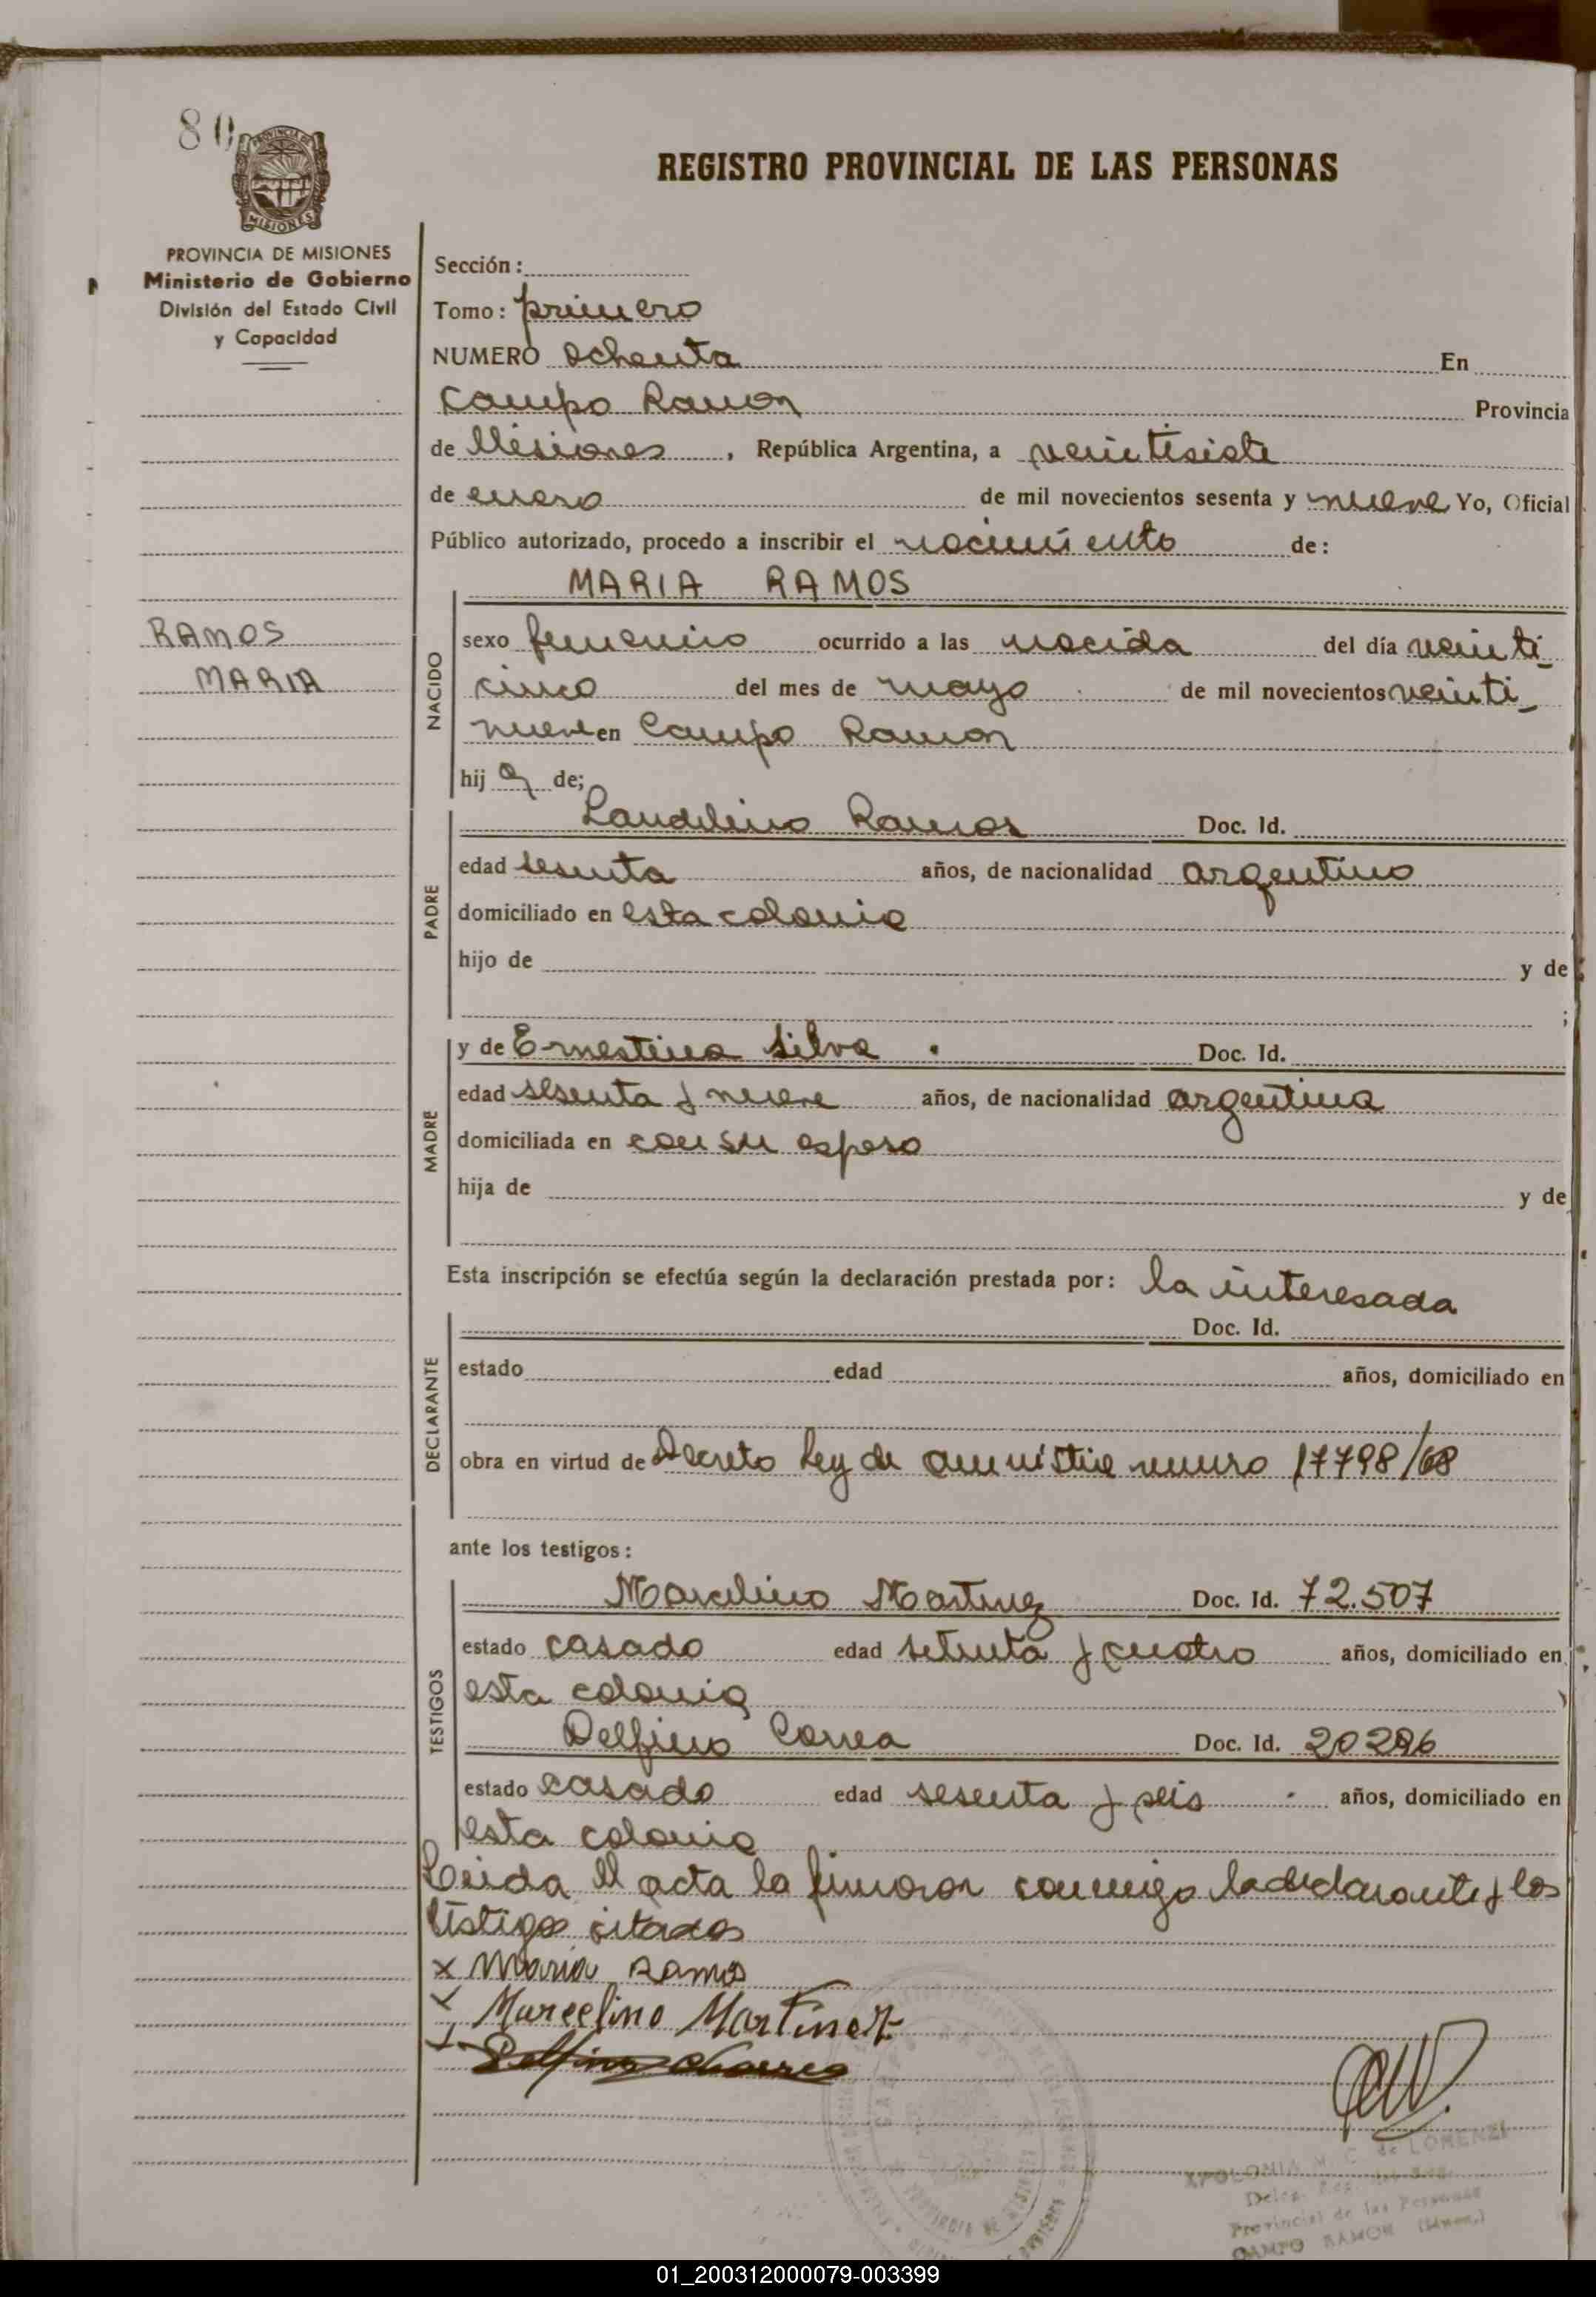 80
PROVINCIA DE
MISIONES
PROVINCIA DE MISIONES
Ministerio de Gobierno
División del Estado Civil
y Capacidad
RAMOS
MARIA
REGISTRO PROVINCIAL DE LAS PERSONAS
Sección:
Tomo: primero
NUMERO ochenta En
Campo Ramon Provincia
de Misiones, República Argentina, a veintisiete
de enero de mil novecientos sesenta y nueve Yo, Oficial
Público autorizado, procedo a inscribir el nacimiento de:
MARIA RAMOS
NACIDO
sexo femenino ocurrido a las nacida del día veinti_
cinco del mes de mayo de mil novecientos veinti_
nueve en Campo Ramon
hija de;
PADRE
Laudelino Ramos Doc. Id.
edad sesenta años, de nacionalidad argentino
domiciliado en esta colonia
hijo de y de
;
MADRE
y de Ernestina Silva . Doc. Id.
edad sesenta y nueve años, de nacionalidad argentina
domiciliada en con su esposo
hija de y de
Esta inscripción se efectúa según la declaración prestada por: la interesada
DECLARANTE
Doc. Id.
estado edad años, domiciliado en
obra en virtud de Decreto Ley de amnistia numro 17798/68
ante los testigos:
TESTIGOS
Marcelino Martinez Doc. Id. 72.507
estado casado edad setenta y cuatro años, domiciliado en
esta colonia
Delfino Correa Doc. Id.
estado casado edad sesenta y seis años, domiciliado en
esta colonia
Leida el acta la firmaron conmigo la declarante y los
testigos citados
x Maria Ramos
x Marcelino Martinez
x Delfino
APOLONIA M. C. de LORENZI
Provincial de las Personas
CAMPO RAMON (Mnes.)
01_200312000079-003399